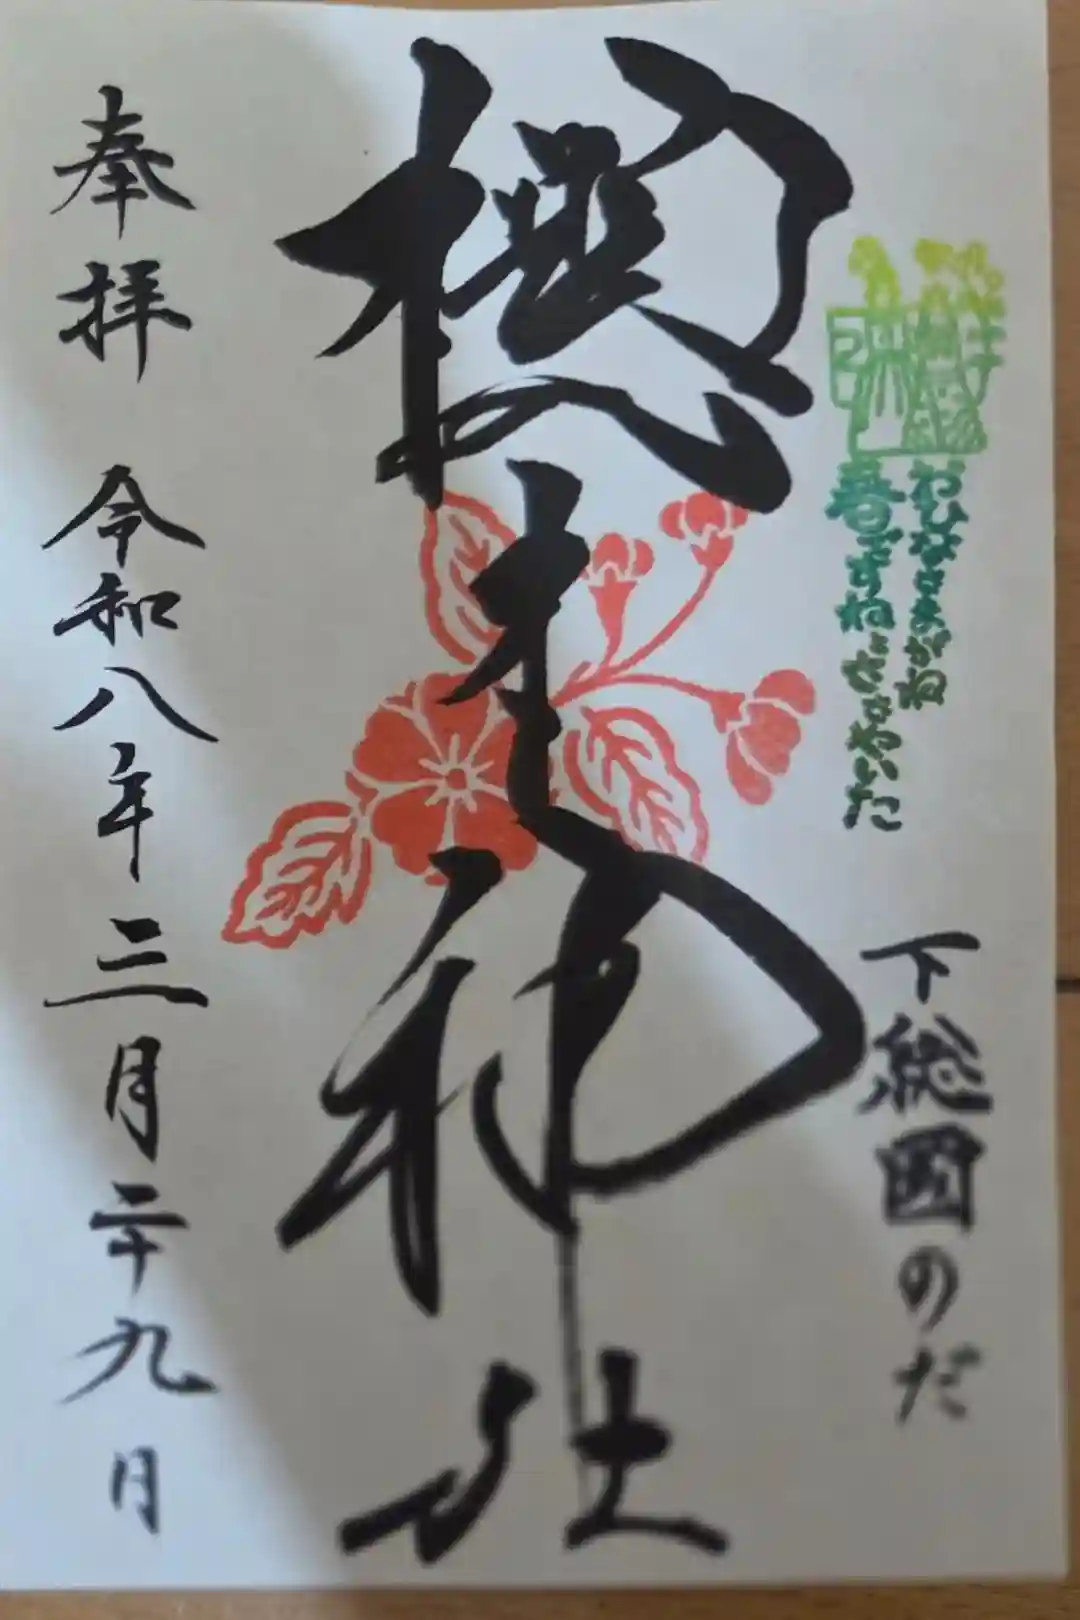 おひなさまがね
春ですねとささやいた
下総國のだ
櫻木神社
奉拝 令和八年三月二十九日